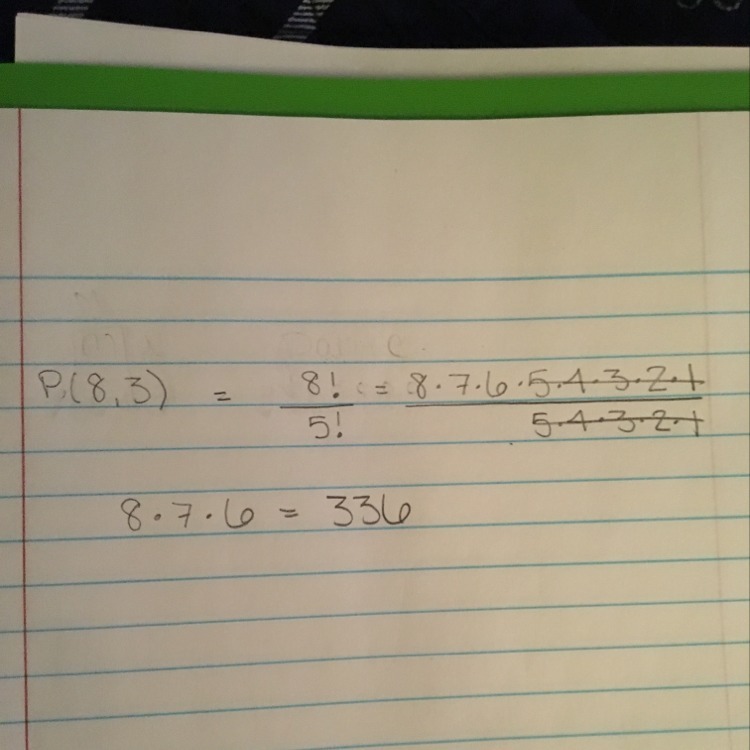 P(8,3) = 8!/5! = 8·7·6·5·4·3·2·1/5·4·3·2·1
8·7·6 = 336